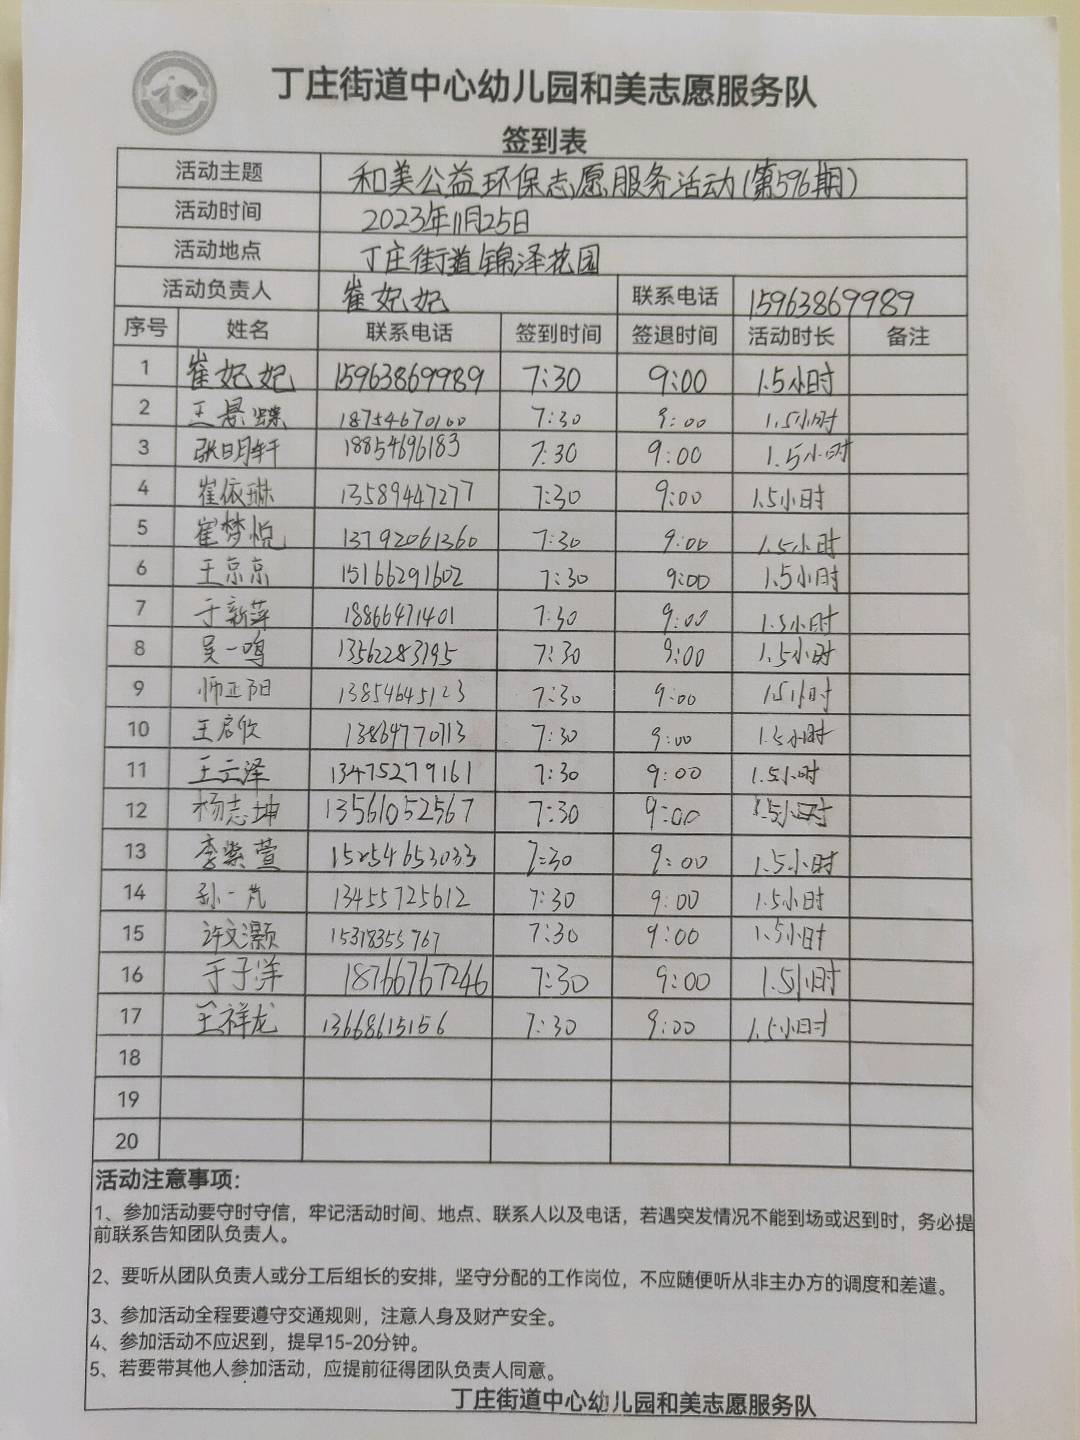 和
丁庄街道中心幼儿园和美志愿服务队
签到表
活动主题 和美公益环保志愿服务活动(第596期)
活动时间 2023年11月25日
活动地点 丁庄街道锦泽花园
活动负责人 崔妃妃 联系电话 15963869989
序号 姓名 联系电话 签到时间 签退时间 活动时长 备注
1 崔妃妃 15963869989 7:30 9:00 1.5小时
2 王 蝶 18754670100 7:30 9:00 1.5小时
3 张明轩 18854696183 7:30 9:00 1.5小时
4 崔依琳 13589447277 7:30 9:00 1.5小时
5 崔梦悦 13792061360 7:30 9:00 1.5小时
6 王京京 15166291602 7:30 9:00 1.5小时
7 于新萍 18866471401 7:30 9:00 1.5小时
8 吴一鸣 13562283195 7:30 9:00 1.5小时
9 师正阳 13854645123 7:30 9:00 1.5小时
10 王启欣 13864770713 7:30 9:00 1.5小时
11 王云泽 13475279161 7:30 9:00 1.5小时
12 杨志坤 13561052567 7:30 9:00 1.5小时
13 李紫萱 15254653033 7:30 9:00 1.5小时
14 孙一凡 13455725612 7:30 9:00 1.5小时
15 许文灏 15318355767 7:30 9:00 1.5小时
16 于子洋 18766767246 7:30 9:00 1.5小时
17 王祥龙 13668615156 7:30 9:00 1.5小时
18
19
20
活动注意事项:
1、参加活动要守时守信，牢记活动时间、地点、联系人以及电话，若遇突发情况不能到场或迟到时，务必提
前联系告知团队负责人。
2、要听从团队负责人或分工后组长的安排，坚守分配的工作岗位，不应随便听从非主办方的调度和差遣。
3、参加活动全程要遵守交通规则，注意人身及财产安全。
4、参加活动不应迟到，提早15-20分钟。
5、若要带其他人参加活动，应提前征得团队负责人同意。
丁庄街道中心幼儿园和美志愿服务队